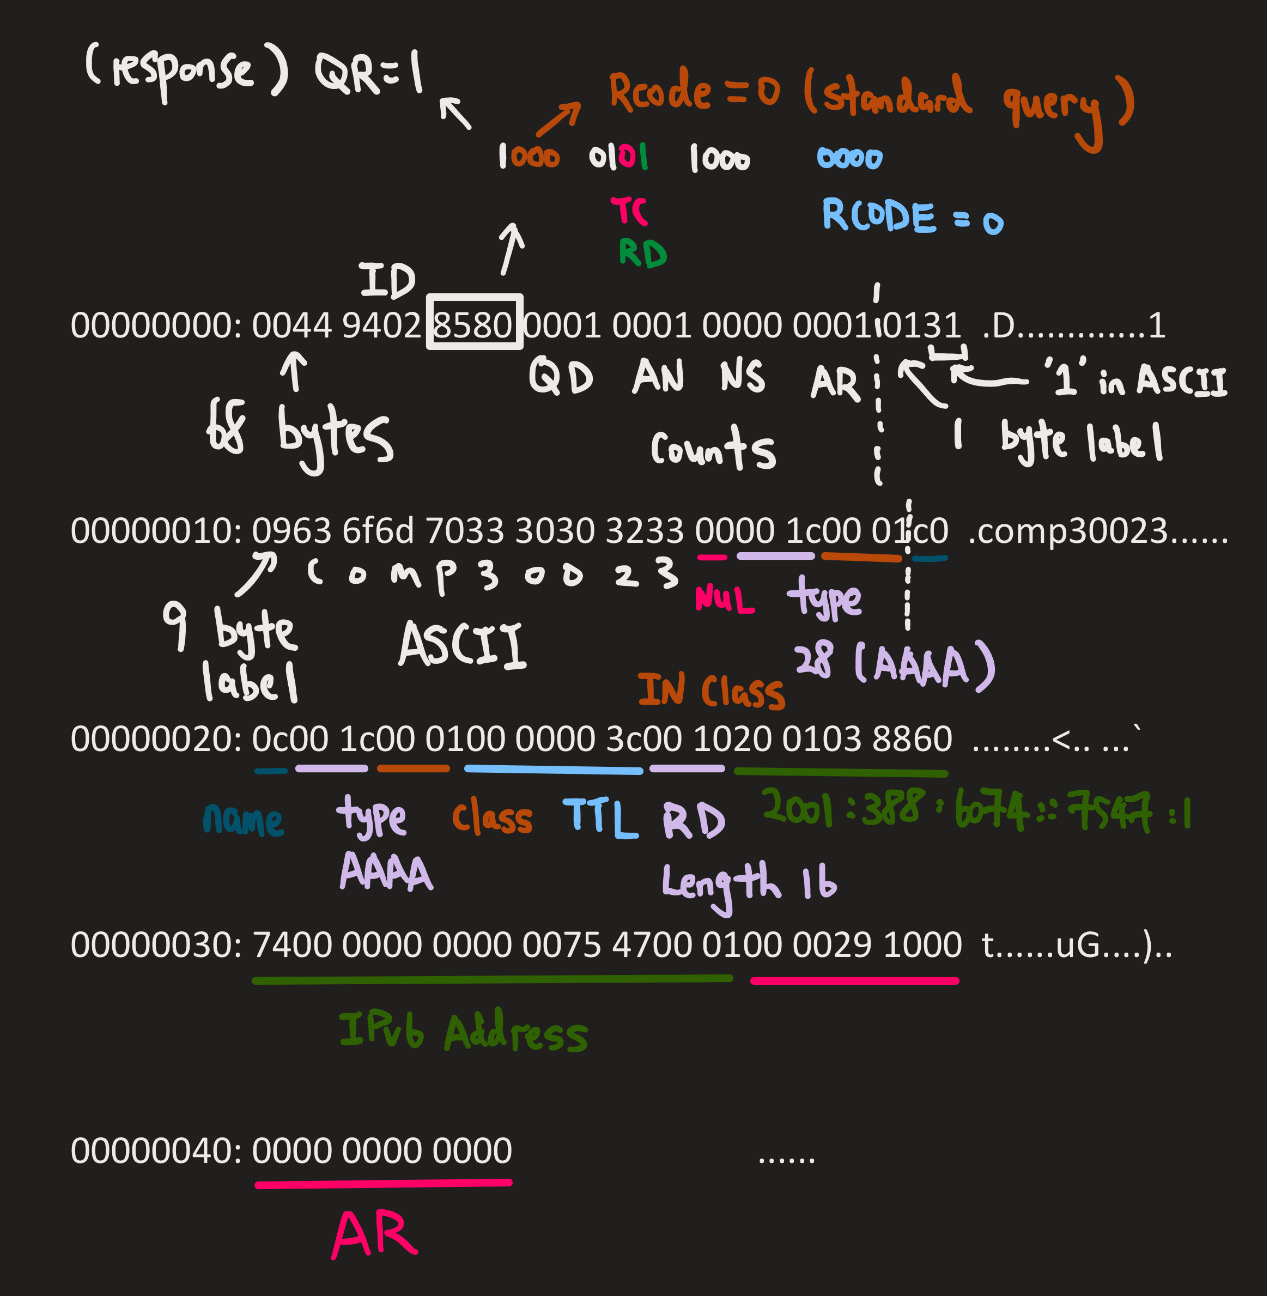 (response) QR=1
Rcode=0 (standard query)
1000 0101 1000 0000
TC
RCODE = 0
RD
ID
00000000: 0044 9402 8580 0001 0001 0000 0001 0131 .D............1
QD AN NS AR
'1' in ASCII
68 bytes
counts
1 byte label
00000010: 0963 6f6d 7033 3030 3233 0000 1c00 01c0 .comp30023......
c o m p 3 0 0 2 3
NUL type
9 byte label
ASCII
28 (AAAA)
IN Class
00000020: 0c00 1c00 0100 0000 3c00 1020 0103 8860 ........<.. ...`
name type class TTL RD
2001:388:6074::7547:1
AAAA
Length 16
00000030: 7400 0000 0000 0075 4700 0100 0029 1000 t......uG....)..
IPv6 Address
00000040: 0000 0000 0000 ......
AR